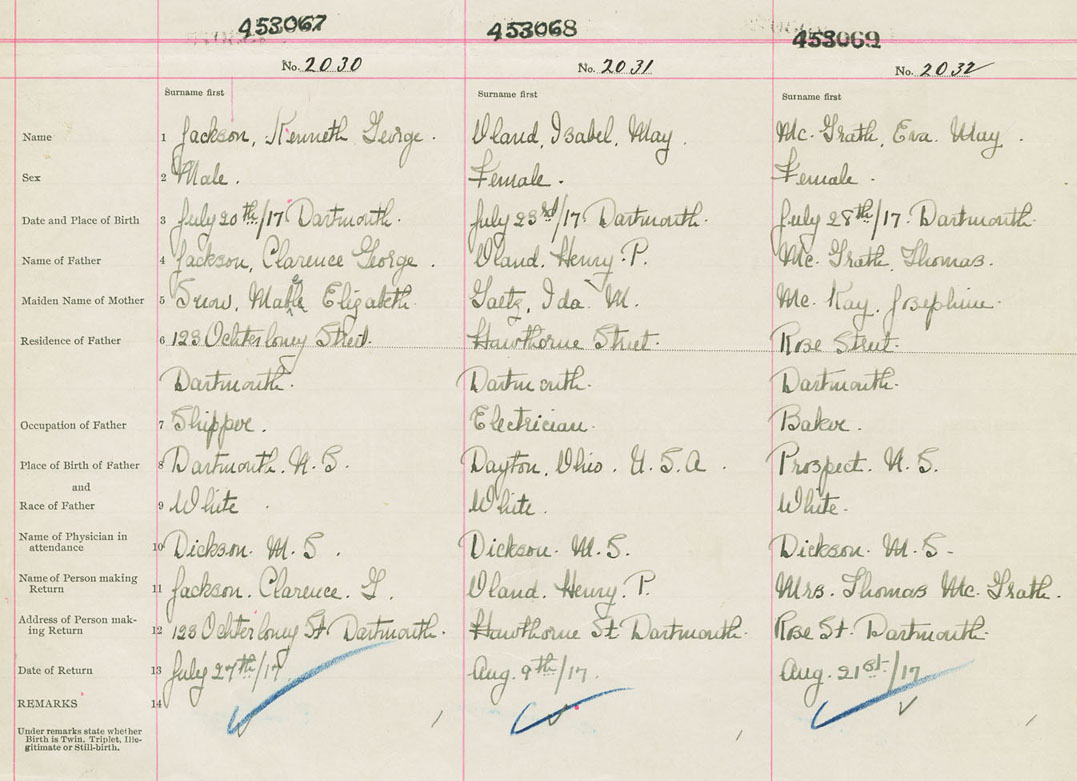 453067 453068 453069
No. 2030 No. 2031 No. 2032
Surname first Surname first Surname first
Name 1 Jackson, Kenneth George. Oland, Isabel, May Mc. Grath, Eva May.
Sex 2 Male. Female. Female.
Date and Place of Birth 3 July 20th/17 Dartmouth. July 23rd/17 Dartmouth. July 28th/17. Dartmouth.
Name of Father 4 Jackson, Clarence George. Oland, Henry. P. Mc. Grath, Thomas.
Maiden Name of Mother 5 Snow, Mable Elizabeth. Gaetz, Ida M. Mc. Kay, Josephine.
Residence of Father 6 123 Ochterloney Street. Hawthorne Street. Rose Street.
Dartmouth. Dartmouth. Dartmouth.
Occupation of Father 7 Shipper. Electrician. Baker.
Place of Birth of Father 8 Dartmouth. N. S. Dayton, Ohio. U. S. A. Prospect. N. S.
and
Race of Father 9 White. White. White.
Name of Physician in
attendance 10 Dickson. M. S. Dickson. M. S. Dickson. M. S.
Name of Person making
Return 11 Jackson. Clarence. G. Oland, Henry. P. Mrs. Thomas Mc. Grath.
Address of Person mak-
ing Return 12 123 Ochterloney St. Dartmouth. Hawthorne St Dartmouth. Rose St. Dartmouth.
Date of Return 13 July 27th/17. Aug. 9th/17. Aug. 21st/17
REMARKS 14
Under remarks state whether
Birth is Twin, Triplet, Ille-
gitimate or Still-birth.